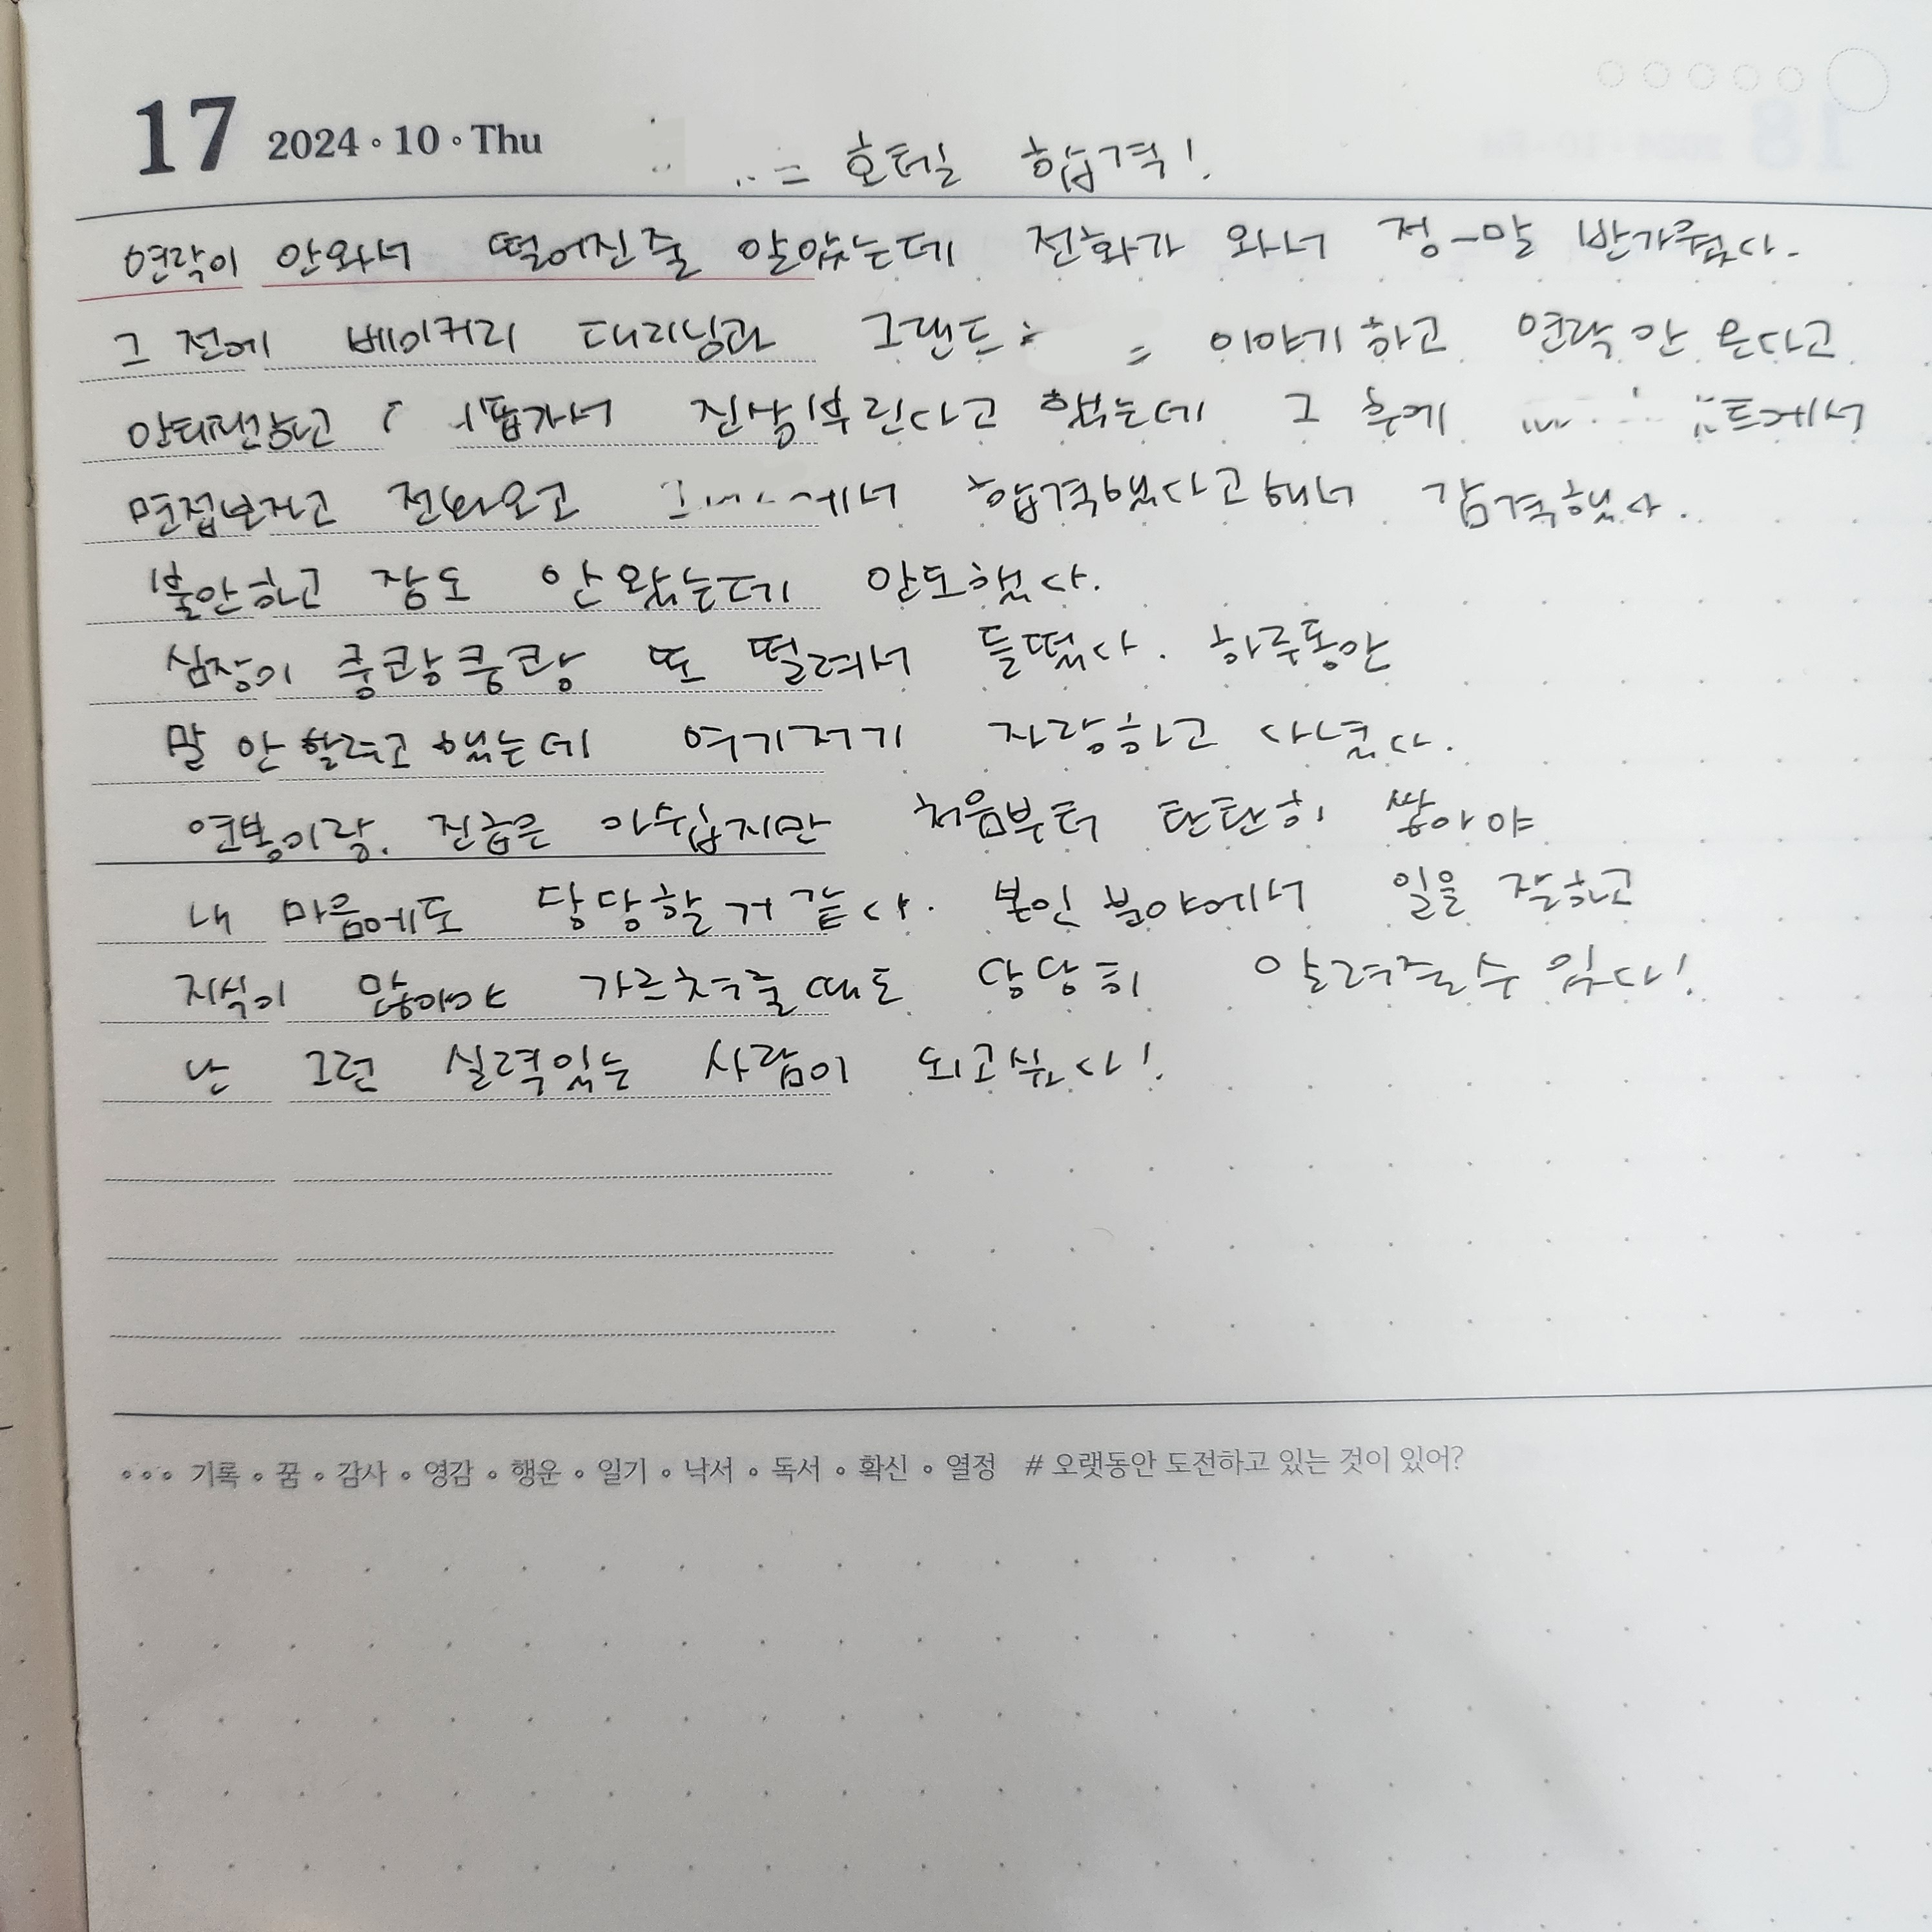 17 2024·10·Thu
호텔 합격!
연락이 안와서 떨어진줄 알았는데 전화가 와서 정-말 반가웠다.
그 전에 베이커리 대리님과 그랜드 이야기하고 연락 안 온다고
진상부린다고 했는데 그 후에
면접보자고 전화오고 에서 합격했다고해서 감격했다.
불안하고 잠도 안 왔는데 안도했다.
심장이 쿵쾅쿵쾅 또 떨려서 들떴다. 하루동안
말 안 할려고 했는데 여기저기 자랑하고 다녔다.
연봉이랑. 진급은 아쉽지만 처음부터 탄탄히 쌓아야
내 마음에도 당당할 거 같다. 본인 분야에서 일을 잘하고
지식이 많아야 가르쳐줄때도 당당히 알려줄수 있다!
난 그런 실력있는 사람이 되고싶다!
∘∘∘ 기록 ∘ 꿈 ∘ 감사 ∘ 영감 ∘ 행운 ∘ 일기 ∘ 낙서 ∘ 독서 ∘ 확신 ∘ 열정 # 오랫동안 도전하고 있는 것이 있어?